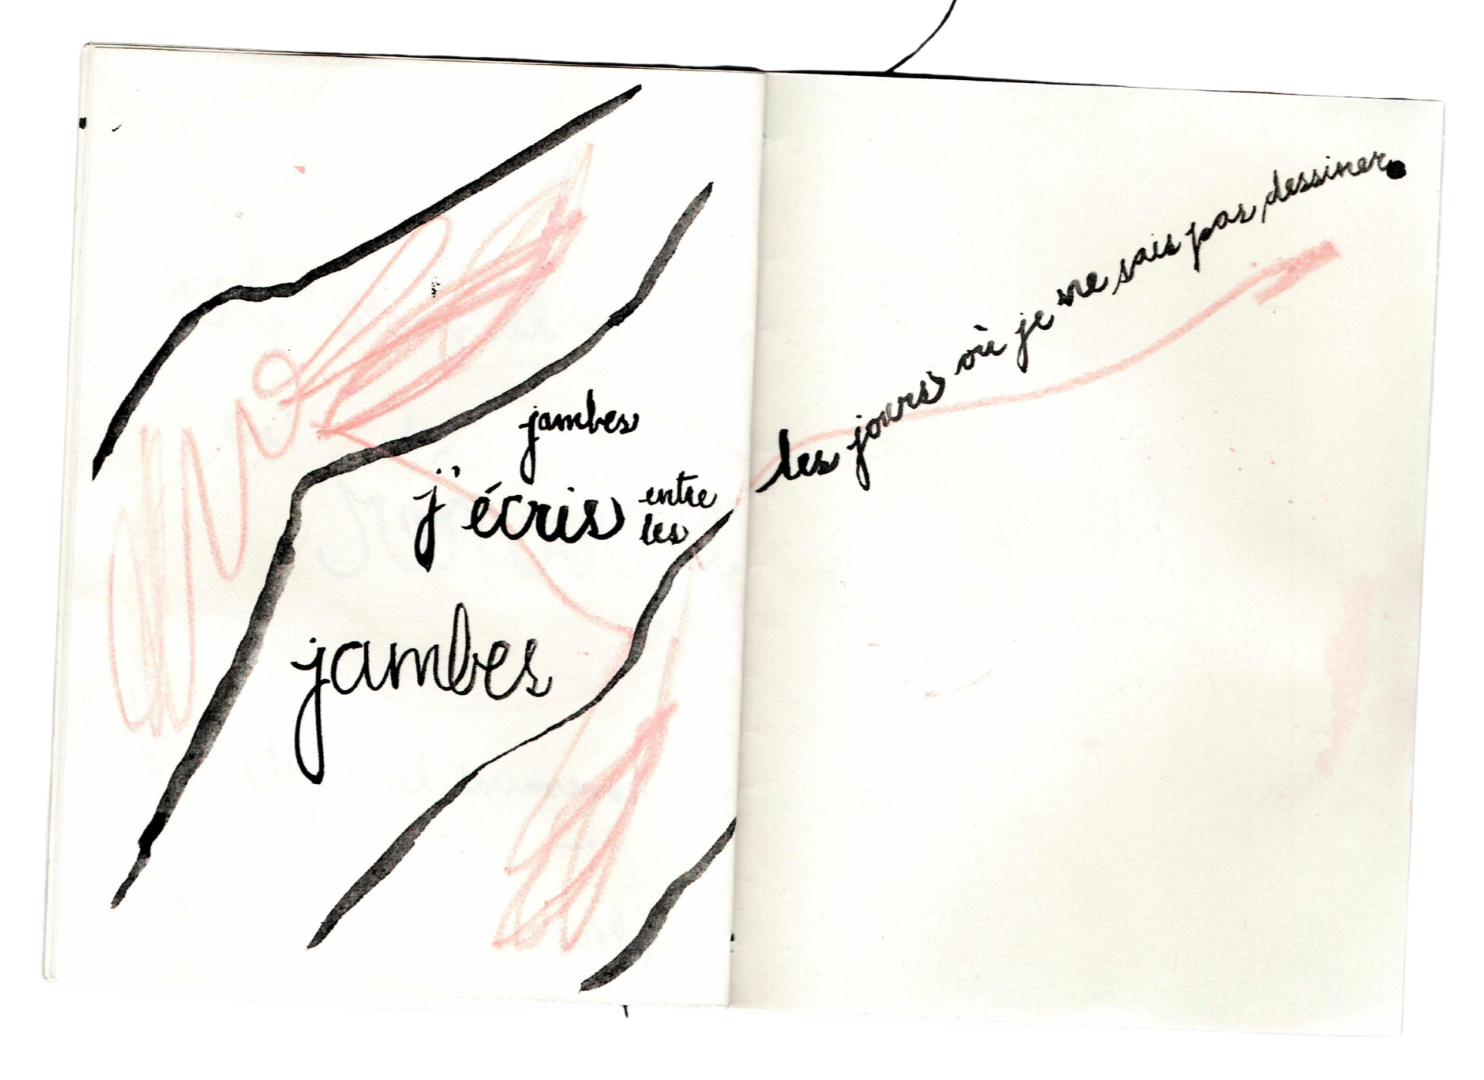 jambes
j'écris entre
les
jambes
les jours où je ne sais pas dessiner.